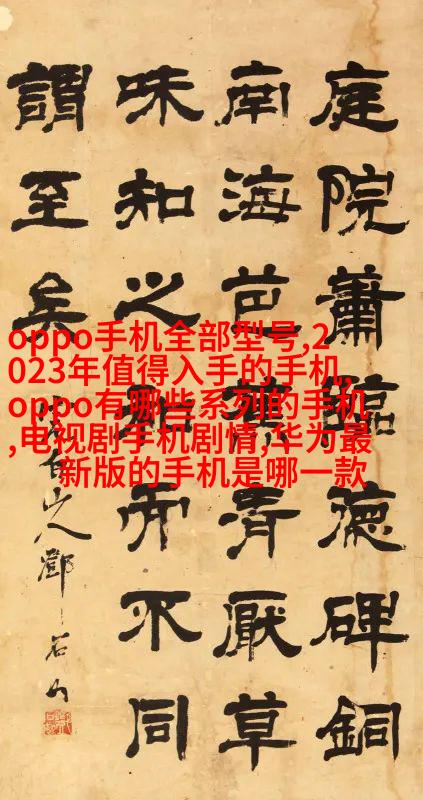 庭院蕭臨德碑銅
南海芭青厭草
味知而不同
謂至矣
白山人鄧石如
oppo手机全部型号,2
023年值得入手的手机,
oppo有哪些系列的手机
,电视剧手机剧情,华为最
新版的手机是哪一款